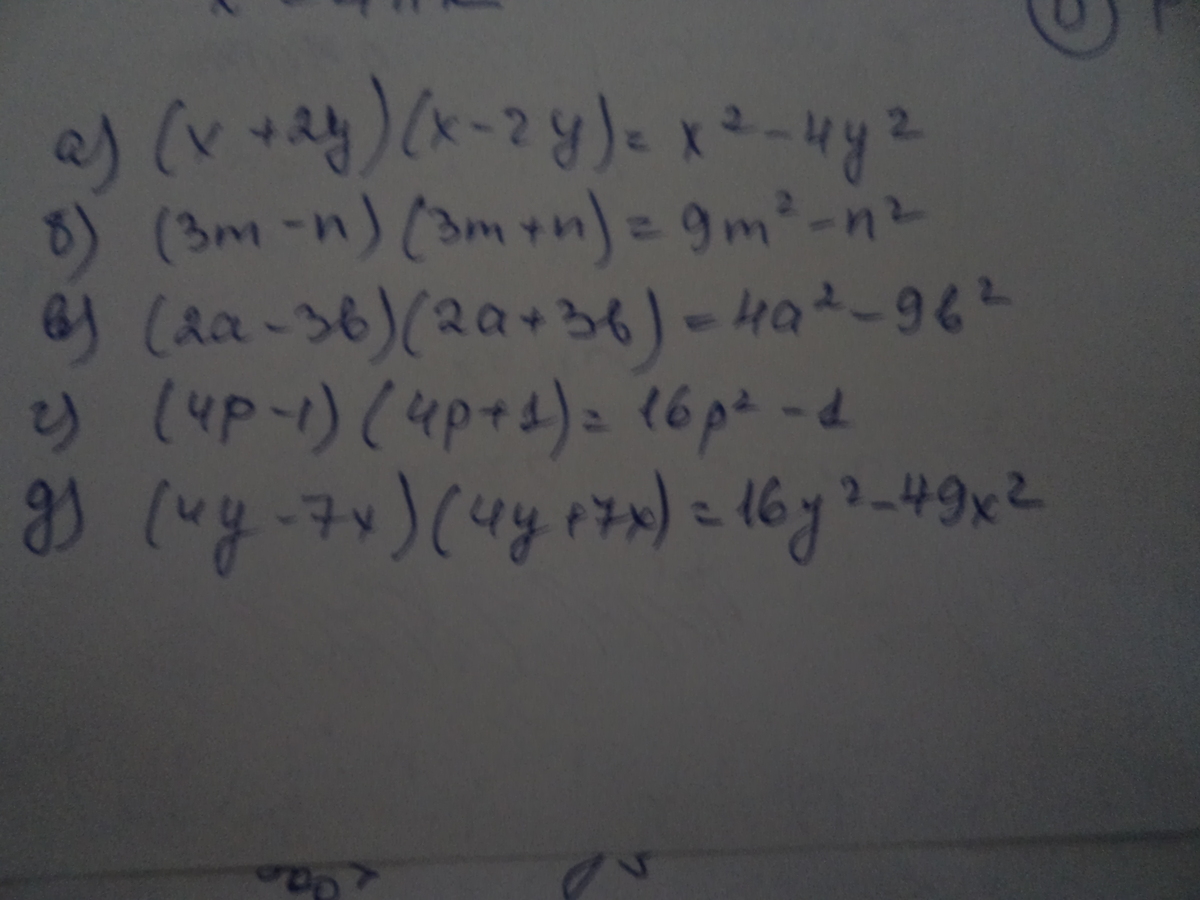 а) (x + 2y)(x - 2y) = x² - 4y²
б) (3m - n)(3m + n) = 9m² - n²
в) (2a - 3b)(2a + 3b) = 4a² - 9b²
г) (4p - 1)(4p + 1) = 16p² - 1
д) (4y - 7x)(4y + 7x) = 16y² - 49x²